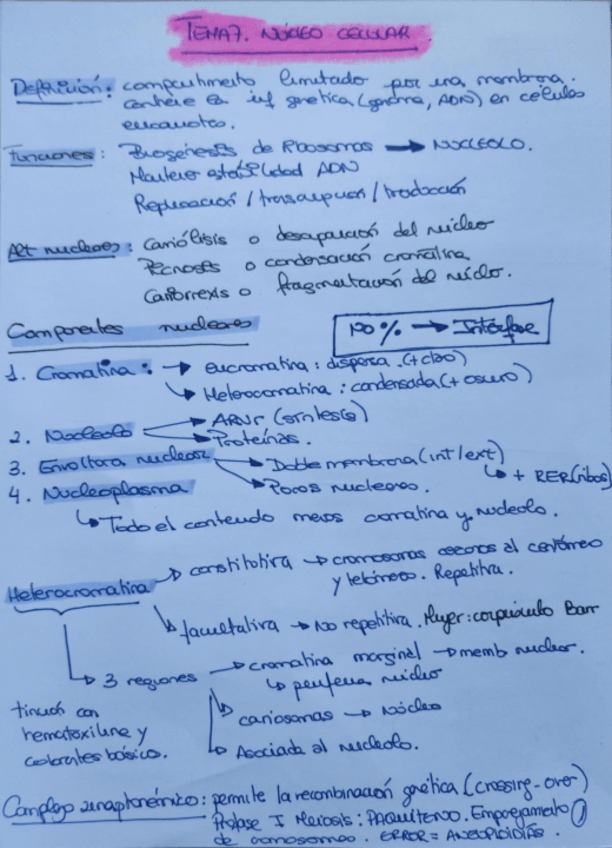 TEMA 7. NÚCLEO CELULAR.
Definición: compartimento limitado por una membrana.
contiene la inf genética (genoma, ADN) en células
eucariotas.
Funciones: Biogénesis de Ribosomas → NUCLEOLO.
Mantener estabilidad ADN
Replicación / transcripción / traducción
Alt nucleares: Cariólisis o desaparición del núcleo
Picnosis o condensación cromatina
Cariorrexis o fragmentación del núcleo.
Componentes nucleares
100% → Interfase
1. Cromatina: → eucromatina: dispersa. (+ claro)
↳ Heterocromatina: condensada (+ oscuro)
2. Nucleolo → ARNr (síntesis)
→ Proteínas.
3. Envoltura nuclear → Doble membrana (int/ext)
↳ + RER (ribos)
→ Poros nucleares.
4. Nucleoplasma
↳ Todo el contenido menos cromatina y nucleolo.
Heterocromatina → constitutiva → cromosomas cercanos al centrómero
y telómero. Repetitiva.
↳ facultativa → No repetitiva. Mujer: corpúsculo Barr
↳ 3 regiones → cromatina marginal → memb nuclear.
↳ periferia núcleo
↳ cariosomas → Núcleo
↳ Asociada al nucleolo.
tinción con
hematoxilina y
colorantes básicos.
Complejo sinaptonémico: permite la recombinación genética (crossing-over)
Profase I Meiosis: PAQUITENO. Emparejamiento
de cromosomas. ERROR = ANEUPLOIDÍAS.